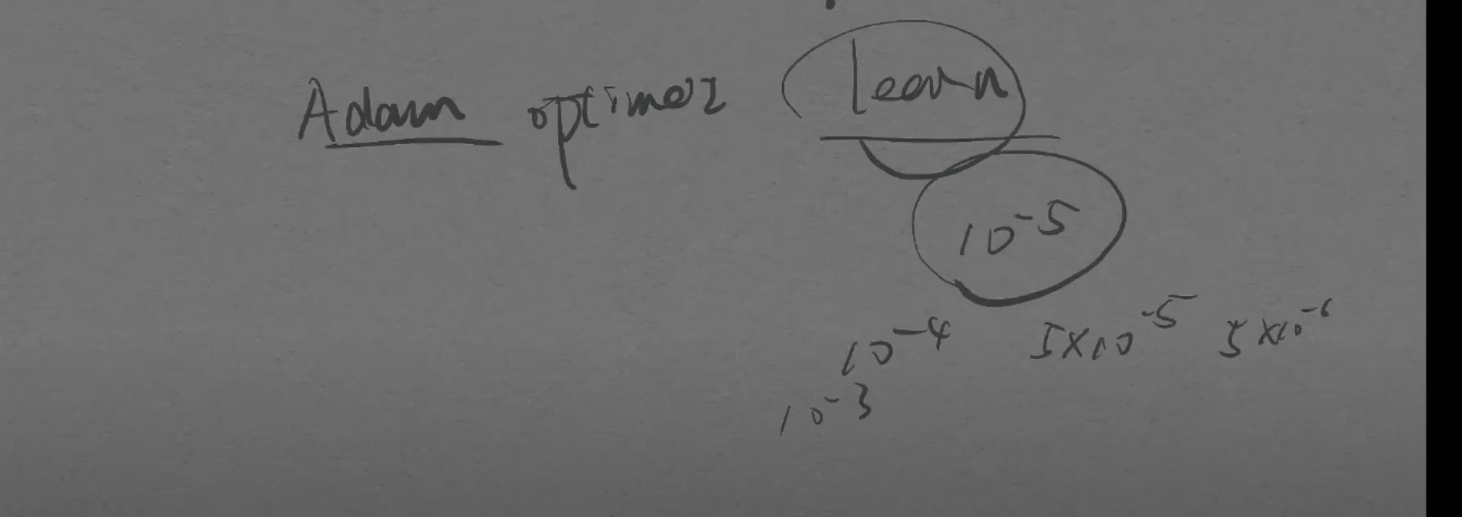 Adam optimer learn
10^-5
10^-4 5×10^-5 5×10^-6
10^-3